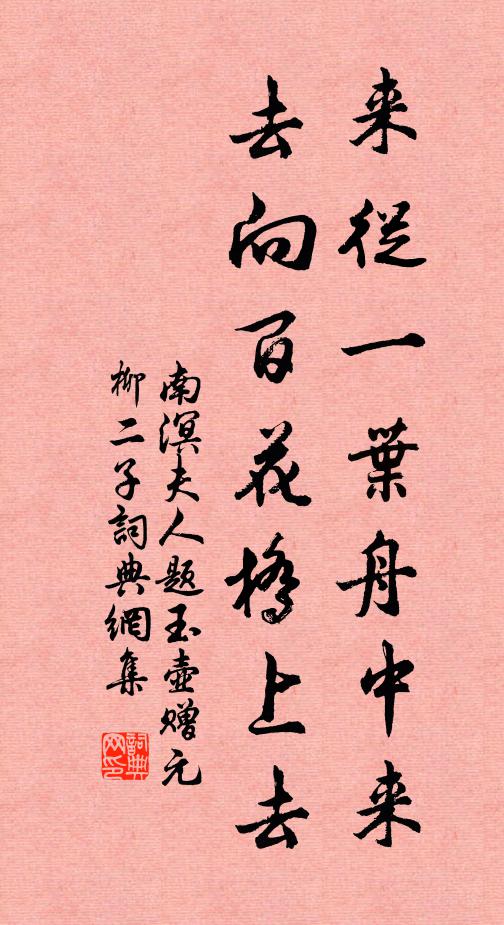 来從一葉舟中来
去向百花橋上去
南溟夫人題玉壺赠元
柳二子詞典網集
詞典
网印